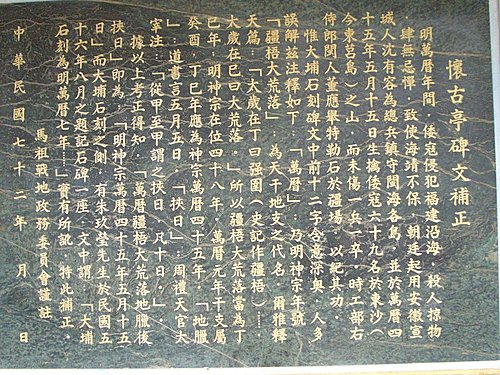 懷古亭碑文補正
明萬曆年間，倭寇侵犯福建沿海，殺人掠物
，肆無忌憚，致使海靖不保，朝廷起用安徽宣
城人沈有容為總兵鎮守閩海各島，並於萬曆四
十五年五月十五日生擒倭寇六十九名於東沙（
今東莒島）之山，而未傷一兵一卒，時工部右
侍郎閩人董應舉特勒石於疆場，以紀其功。
惟大埔石刻碑文中前十二字含意深奧，人多
誤解茲注釋如下：「萬曆」乃明神宗年號，
「疆梧大荒落」：為天干地支之代名，爾雅釋
天篇，「大歲在丁曰强圉（史記作疆梧）……
大歲在巳曰大荒落。」所以疆梧大荒落當為丁
巳年，明神宗在位四十八年，萬曆元年干支屬
癸酉，丁巳年應為神宗萬曆四十五年，「地臘
」：道書言五月五日，「挾日」：周禮天官大
宰注：「從甲至甲謂之挾日，凡十日。」
據以上考正得知，「萬曆疆梧大荒落地臘後
挾日」即為：「明神宗萬曆四十五年五月十五
日」而大埔石刻之側，有朱玖瑩先生於民國五
十六年八月之題記石碑一座，文中謂：「大埔
石刻為明萬曆七年……」實有所訛，特此補正。
馬祖戰地政務委員會謹註
中華民國七十二年　月　日